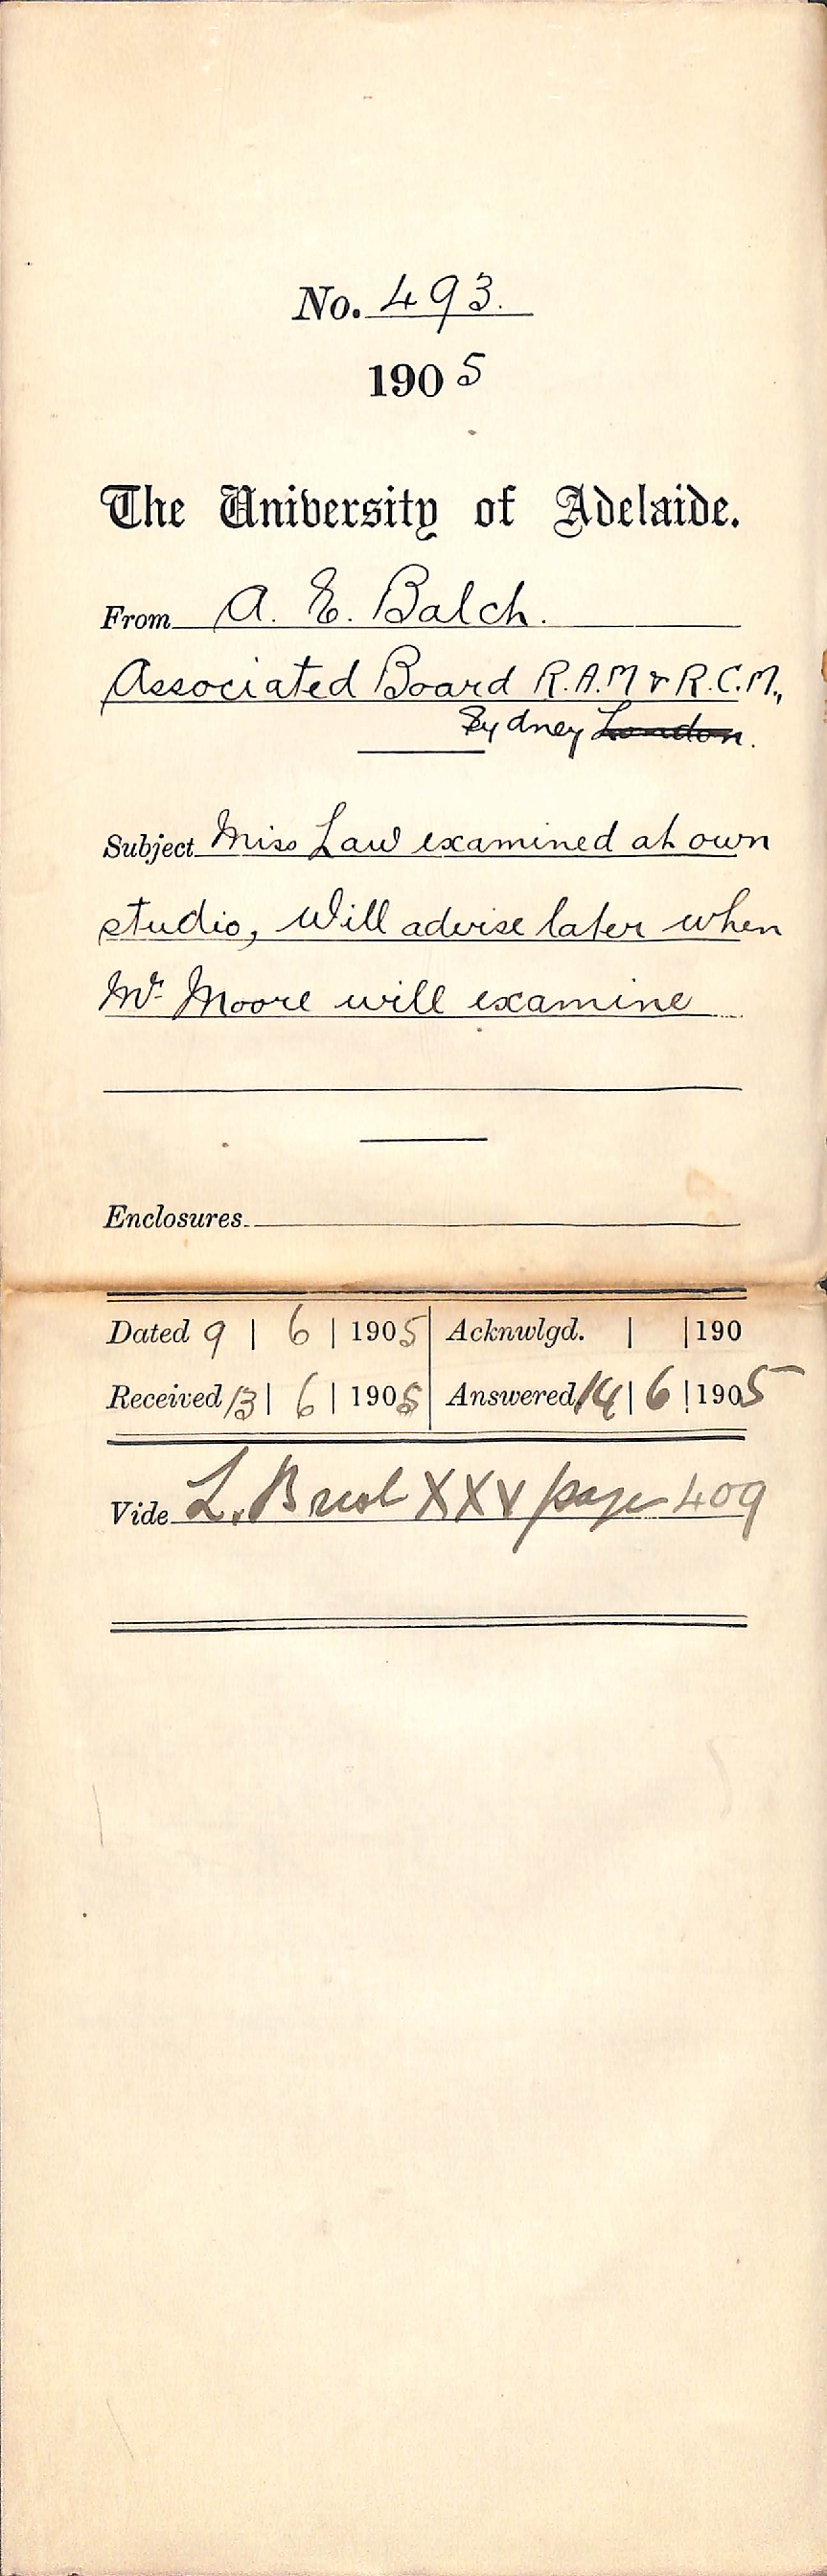 No. 493.
1905
The University of Adelaide.
From A. E. Balch.
Associated Board R.A.M & R.C.M.,
Sydney London.
Subject Miss Law examined at own
studio, Will advise later when
Mr. Moore will examine
Enclosures
Dated 9 | 6 | 1905 Acknwlgd. | | 190
Received 13 | 6 | 1905 Answered 14 | 6 | 1905
Vide L. XXV page 409